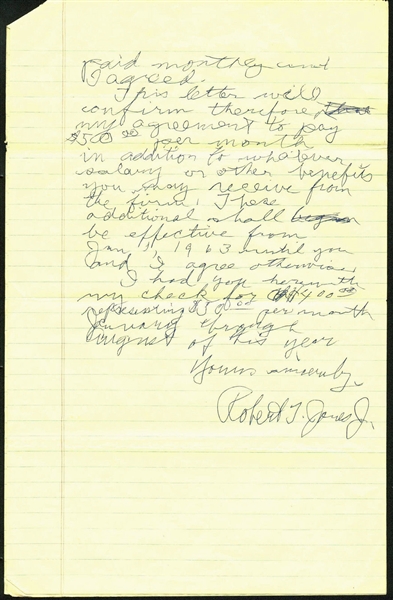 paid monthly and
I agreed.
This letter will
confirm therefore
my agreement to pay
$50 00 per month
in addition to whatever
salary or other benefits
you may receive from
the firm. These
additional shall
be effective from
Jan 1, 1963 until you
and I agree otherwise.
I had you herewith
my check for $400 00
representing $50 00 per month
January through
August of his year
Yours sincerely,
Robert T. Jones Jr.